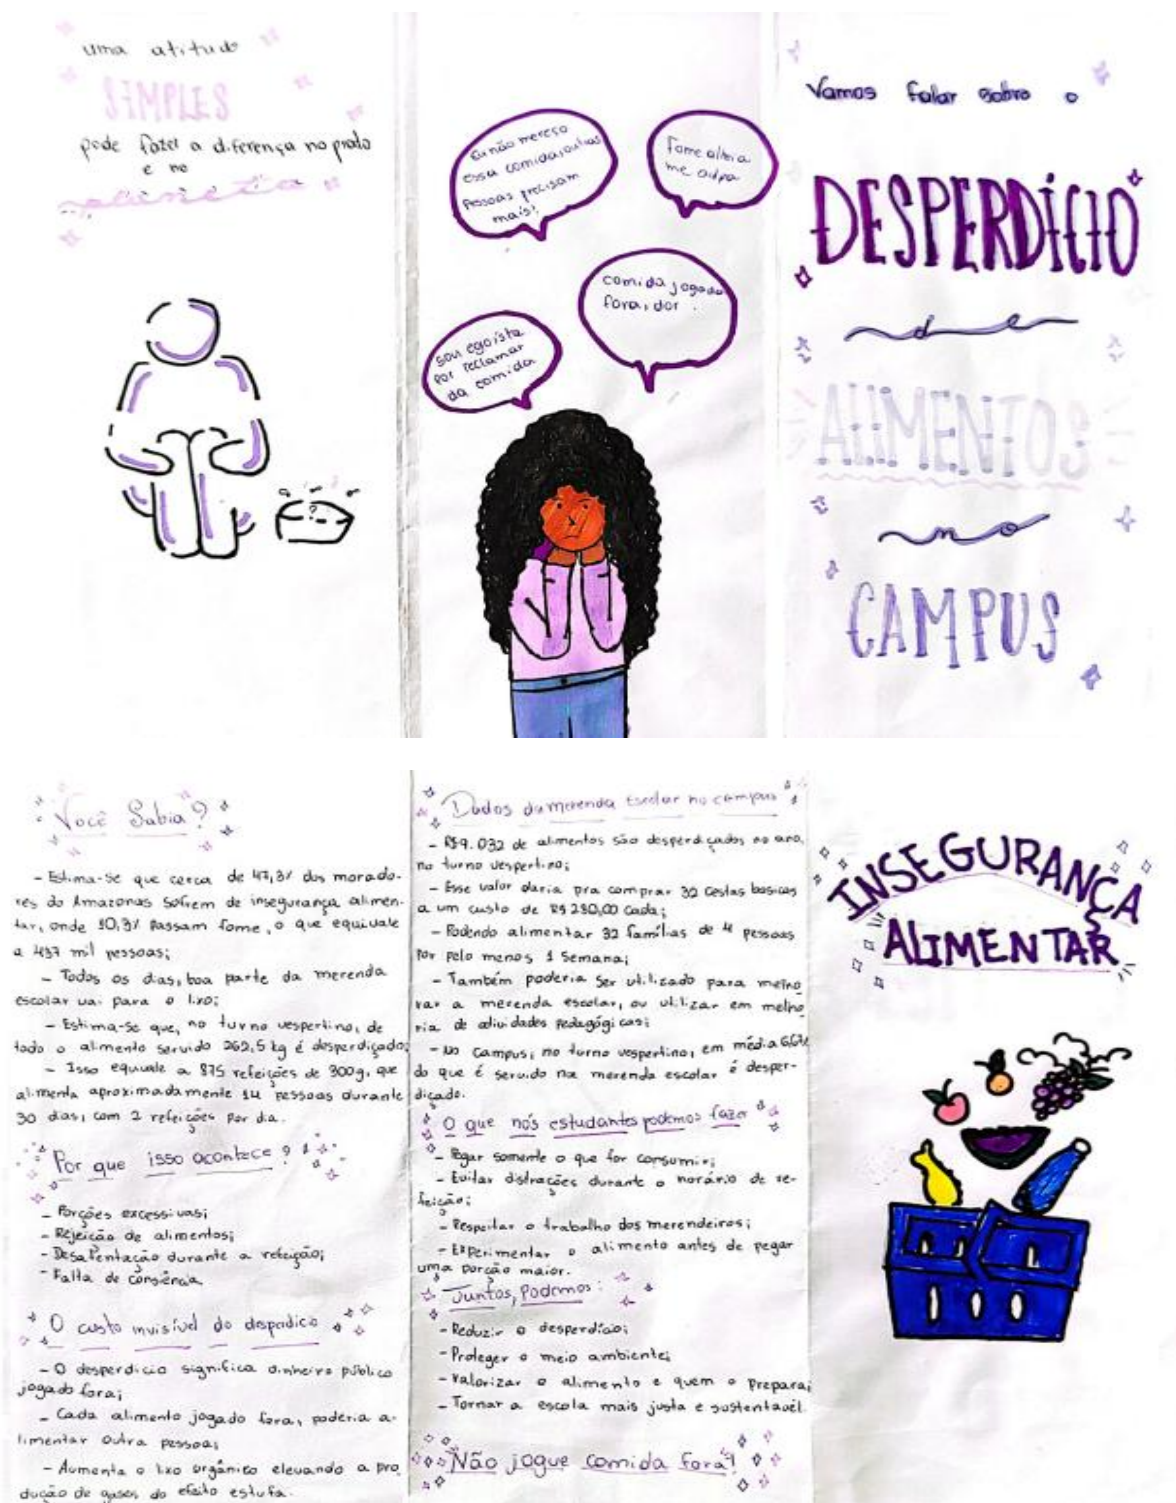 uma atitude
SIMPLES
pode fazer a diferença no prato
e no
planeta
Eu não mereço
essa comida, outras
pessoas precisam
mais!
fome alheia
me culpa
comida jogada
fora, dor.
sou egoísta
por reclamar
da comida
Vamos falar sobre o
DESPERDÍCIO
de
ALIMENTOS
no
CAMPUS
Você Sabia?
- Estima-se que cerca de 47,3% dos morado-
res do Amazonas sofrem de insegurança alimen-
tar, onde 10,3% passam fome, o que equivale
a 437 mil pessoas;
- Todos os dias, boa parte da merenda
escolar vai para o lixo;
- Estima-se que, no turno vespertino, de
todo o alimento servido 262,5 kg é desperdiçado;
- Isso equivale a 875 refeições de 300g, que
alimenta aproximadamente 14 pessoas durante
30 dias, com 2 refeições por dia.
Por que isso acontece?
- Porções excessivas;
- Rejeição de alimentos;
- Desatentação durante a refeição;
- Falta de consiência
O custo invisível do despedico
- O desperdicio significa dinheiro público
jogado fora;
- Cada alimento jogado fora, poderia a-
limentar outra pessoa;
- Aumenta o lixo orgânico elevando a pro
dução de gases do efeito estufa.
Dados da merenda Escolar no campus
- R$9.032 de alimentos são desperdiçados no ano,
no turno vespertino;
- Esse valor daria pra comprar 32 cestas basicas
a um custo de R$ 280,00 cada;
- Podendo alimentar 32 famílias de 4 pessoas
por pelo menos 1 semana;
- Também poderia ser utilizado para melho
rar a merenda escolar, ou utilizar em melho
ria de atividades pedagógicas;
- No campus, no turno vespertino, em média
do que é servido na merenda escolar é desper-
diçado.
O que nós estudantes podemos fazer
- Pegar somente o que for consumir;
- Evitar distrações durante o horário de re-
feição;
- Respeitar o trabalho dos merendeiros;
- Experimentar o alimento antes de pegar
uma porção maior.
Juntos, Podemos:
- Reduzir o desperdício;
- Proteger o meio ambiente;
- Valorizar o alimento e quem o prepara;
- Tornar a escola mais justa e sustentavél
Não jogue comida fora!
INSEGURANÇA
ALIMENTAR